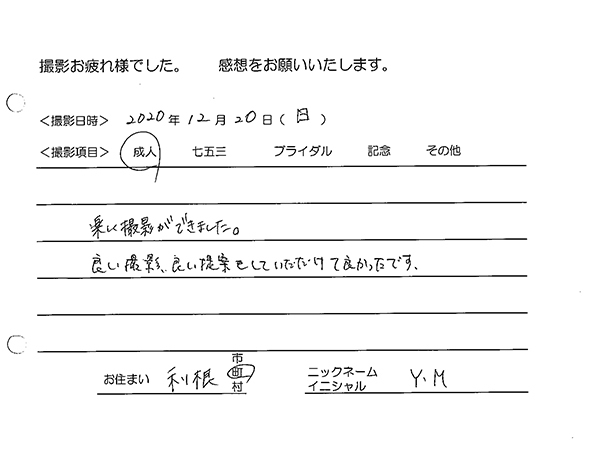 撮影お疲れ様でした。　感想をお願いいたします。
<撮影日時>　2020年12月20日(日)
<撮影項目>　成人　七五三　ブライダル　記念　その他
楽しい撮影ができました。
良い撮影、良い提案をしていただけて良かったです、
お住まい　利根　市町村　ニックネーム イニシャル　Y.M